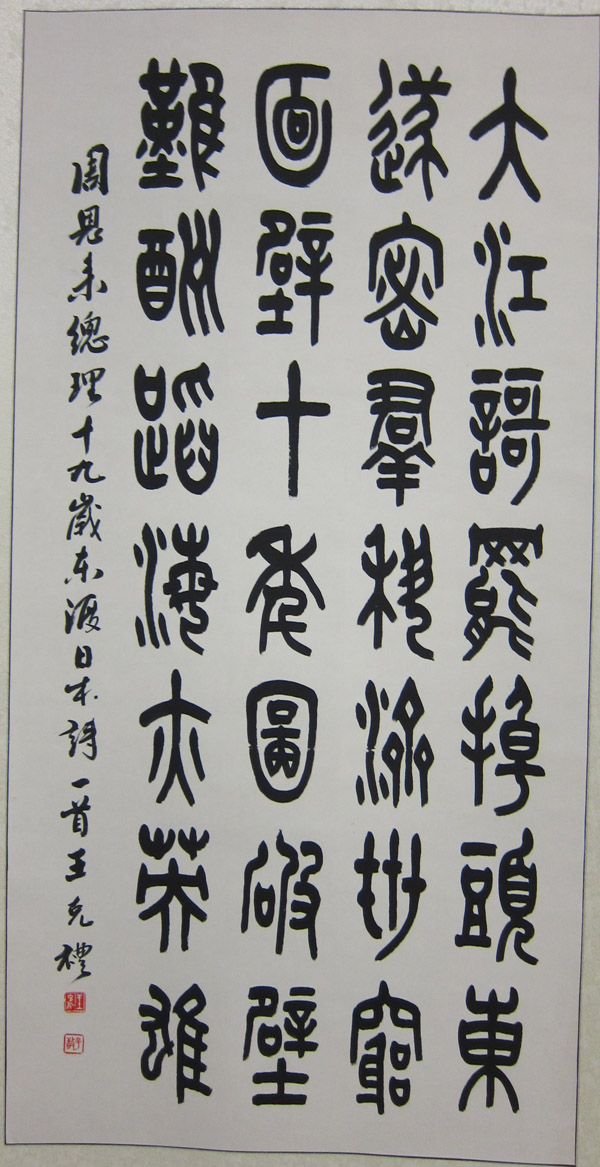 大江謌罷掉頭東
遂密羣科濟世窮
面壁十年圖破壁
難酬蹈海亦英雄
周恩来總理十九歲东渡日本詩一首王克禮